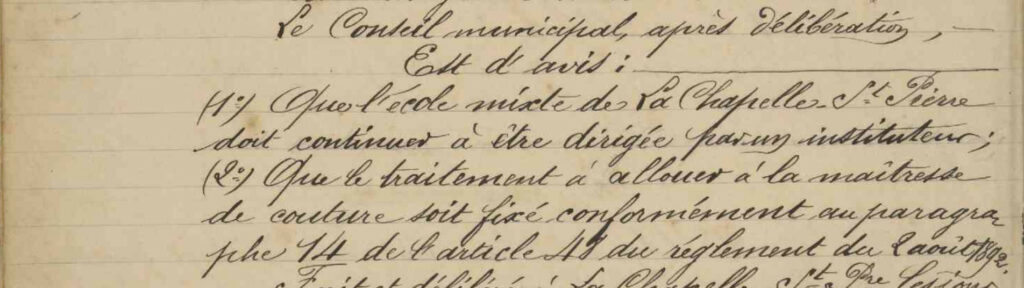 Le Conseil municipal, après délibération, —
Est d'avis : —
(1º) Que l'école mixte de La Chapelle-St Pierre
doit continuer à être dirigée par un instituteur ;
(2º) Que le traitement à allouer à la maîtresse
de couture soit fixé conformément au paragra
phe 14 de l'article 48 du réglement du 2 août 1892.
Fait et délibéré à La Chapelle - St Pre les jour